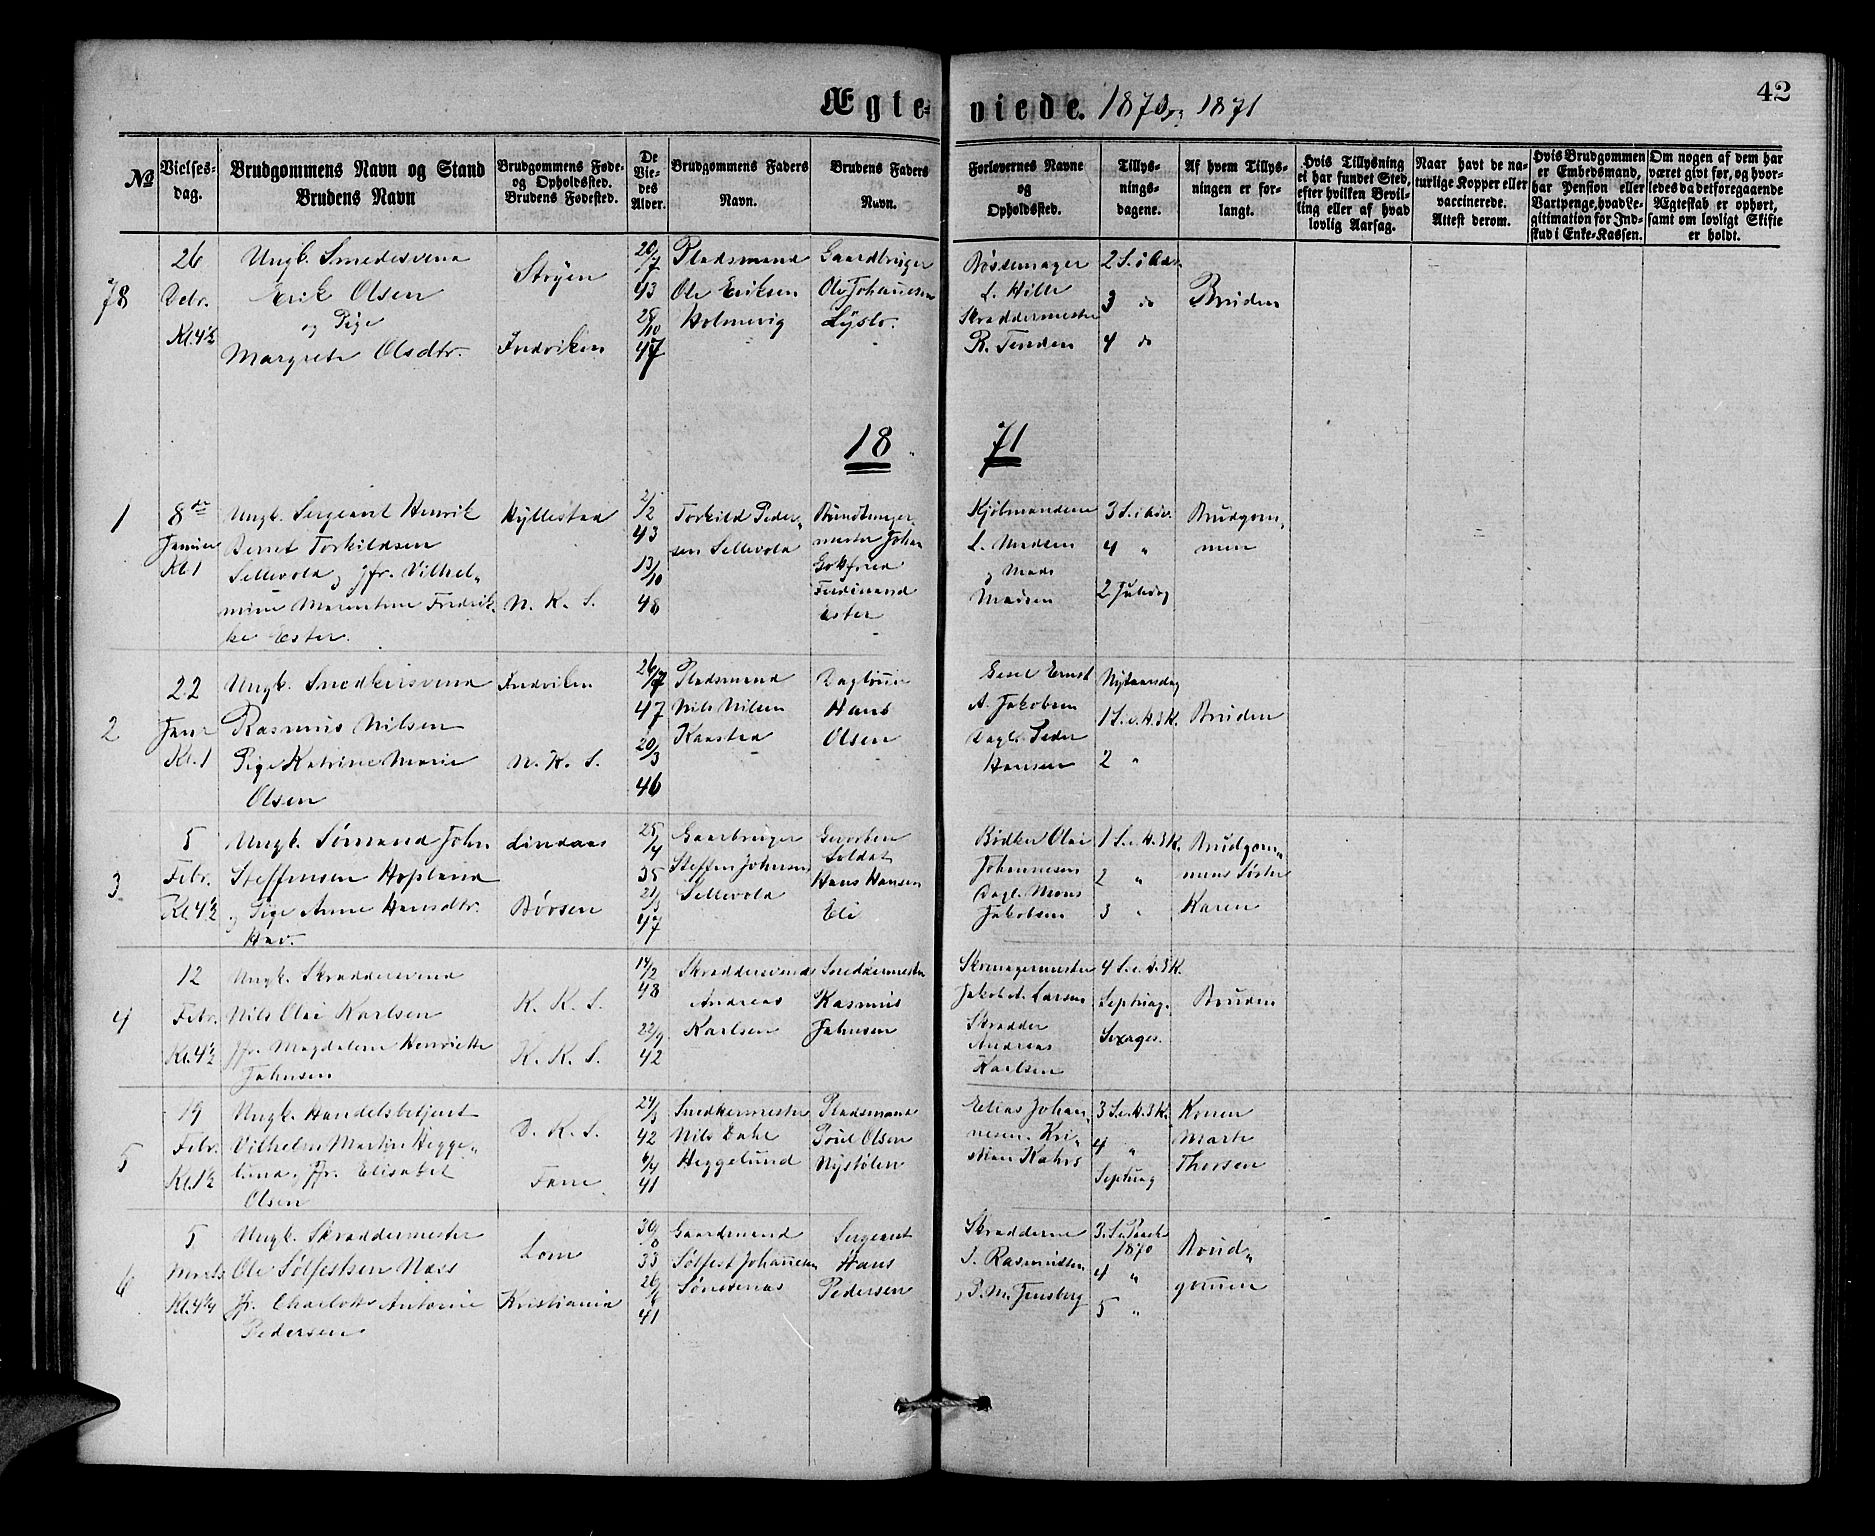 Ægte-
viede. 1870 og 1871
42
No
Vielses-
dag.
Brudgommens Navn og Stand
Brudens Navn
Brudgommens Føde-
og Opholdssted.
Brudens Fødested.
De
Vie-
des
Alder.
Brudgommens Faders
Navn.
Brudens Faders
Navn.
Forlovernes Navne
og
Opholdssted.
Tillys-
nings-
dagene.
Af hvem Tillys-
ningen er for-
langt.
Hvis Tillysning
ei har fundet Sted,
efter hvilken Bevil-
ling eller af hvad
lovlig Aarsag.
Naar havt de na-
turlige Kopper eller
vaccinerede.
Attest derom.
Hvis Brudgommen
er Embedsmand,
har Pension eller
Vartpenge, hvad Le-
gitimation for Ind-
skud i Enke-Kassen.
Om nogen af dem har
været gift før, og hvor-
ledes da det foregaaende
Ægteskab er ophørt,
samt om lovligt Skifte
er holdt.
78
26
Debr.
Kl. 4½
Ungk. Smedesvend
Erik Olsen
og Pige
Margrete Olsdtr.
Strøen
Indviken
20/7
43
25/10
47
Pladsmand
Ole Eriksen
Holmevig
Gaardbruger
Ole Johannesen
Lyslo.
Bøssemager
L. Hille
Skræddermester
R. Tenden
2 S. i Adv.
3 do
4 do
Bruden
18 71
1
8de
Januar
Kl. 1
Ungk. Sergeant Henrik
Bernt Torkildsen
Sellevold og Jfr. Vilhel-
mine Marentine Fredrik-
ke Ester.
Hyllestad
N. K. S.
2/2
43
13/10
48
Torkild Peder-
sen Sellevold
mester Johan
Gotfried
Ferdinand
Ester
Kjøbmændene
L. Madsen
og Mads
Madsen
3 S. i Adv.
4 "
2 Juledag
Brudgom-
men
2
22
Janr
Kl. 1
Ungk. Snedkersvend
Rasmus Nilsen
Pige Katrine Marie
Olsen
Indviken
N. K. S.
26/7
47
20/3
46
Pladsmand
Nils Nilsen
Kaastad
Daglønner
Hans
Olsen
Gesel Ernst
A. Jakobsen
Dagl. Peder
Hansen
Nytaarsdag
1 S. e. H. 3 K.
2 "
Bruden
3
5
Febr.
Kl. 4½
Ungk. Sømand John
Steffensen Hopland
og Pige Anne Hansdtr.
Hav.
Lindaas
Børsen
25/4
35
21/3
47
Gaarbruger
Steffen Johnsen
Sellevold
Gevorben
Soldat
Hans Hansen
Eli
Bødker Olai
Johannesen
Dagl. Mons
Jakobsen
1 S. e. H. 3 K.
2 "
3 "
Brudgom-
mens Søster
Karen
4
12
Febr.
Kl. 4½
Ungk. Skræddersvend
Nils Olai Karlsen
Jfr. Magdalene Henriette
Johnsen
K. K. S.
K. K. S.
14/2
48
22/9
42
Skræddersvend
Andreas
Karlsen
Snedkermester
Rasmus
Johnsen
Skomagermester
Jakob A. Larsen
Skrædder
Andreas
Karlsen
4 S. e. H. 3 K.
Septuag.
Sexages.
Bruden
5
19
Febr.
Kl. 1½
Ungk. Handelsbetjent
Vilhelm Martin Hegge-
lund, Jfr. Elisabet
Olsen
D. K. S.
Fane
24/3
42
6/4
41
Snedkermester
Nils Dahl
Heggelund
Pladsmand
Poul Olsen
Nystølen
Elias Johan-
nesen. Kri-
stian Kahrs
3 S. e. H. 3 K.
4 "
Septuag
Konen
Marte
Thorsen
6
5
Marts
Kl. 4¼
Ungk. Skræddermester
Ole Sølfestsen Næss
Jfr. Charlotte Antonie
Pedersen
Lom
Kristiania
33
41
Gaardmand
Sølfest Johannesen
Sergeant
Hans
Pedersen
Skrædderne
S. Rasmussen
3. S. e. Paask
1870
4 "
5 "
Brud-
gommen